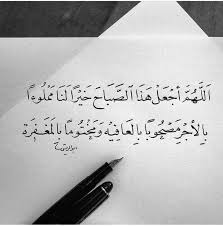 اَللّٰهُمَّ أَجْعَلْ هَذَا ٱلصَّبَاحَ خَيْرًا لَنَا مَمْلُوءًا
بِالأَجْرِ مَصْحُوبًا بِالعَافِيَه وَمَخْتُومًا بِالمَغْفِرَة